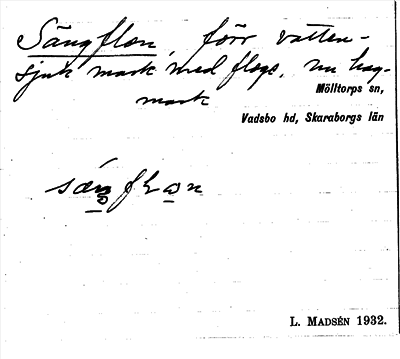 Sängflon, förr vatten-
sjuk mark med flogs, nu hag-
mark
Mölltorps sn,
Vadsbo hd, Skaraborgs län
L. MADSÉN 1932.